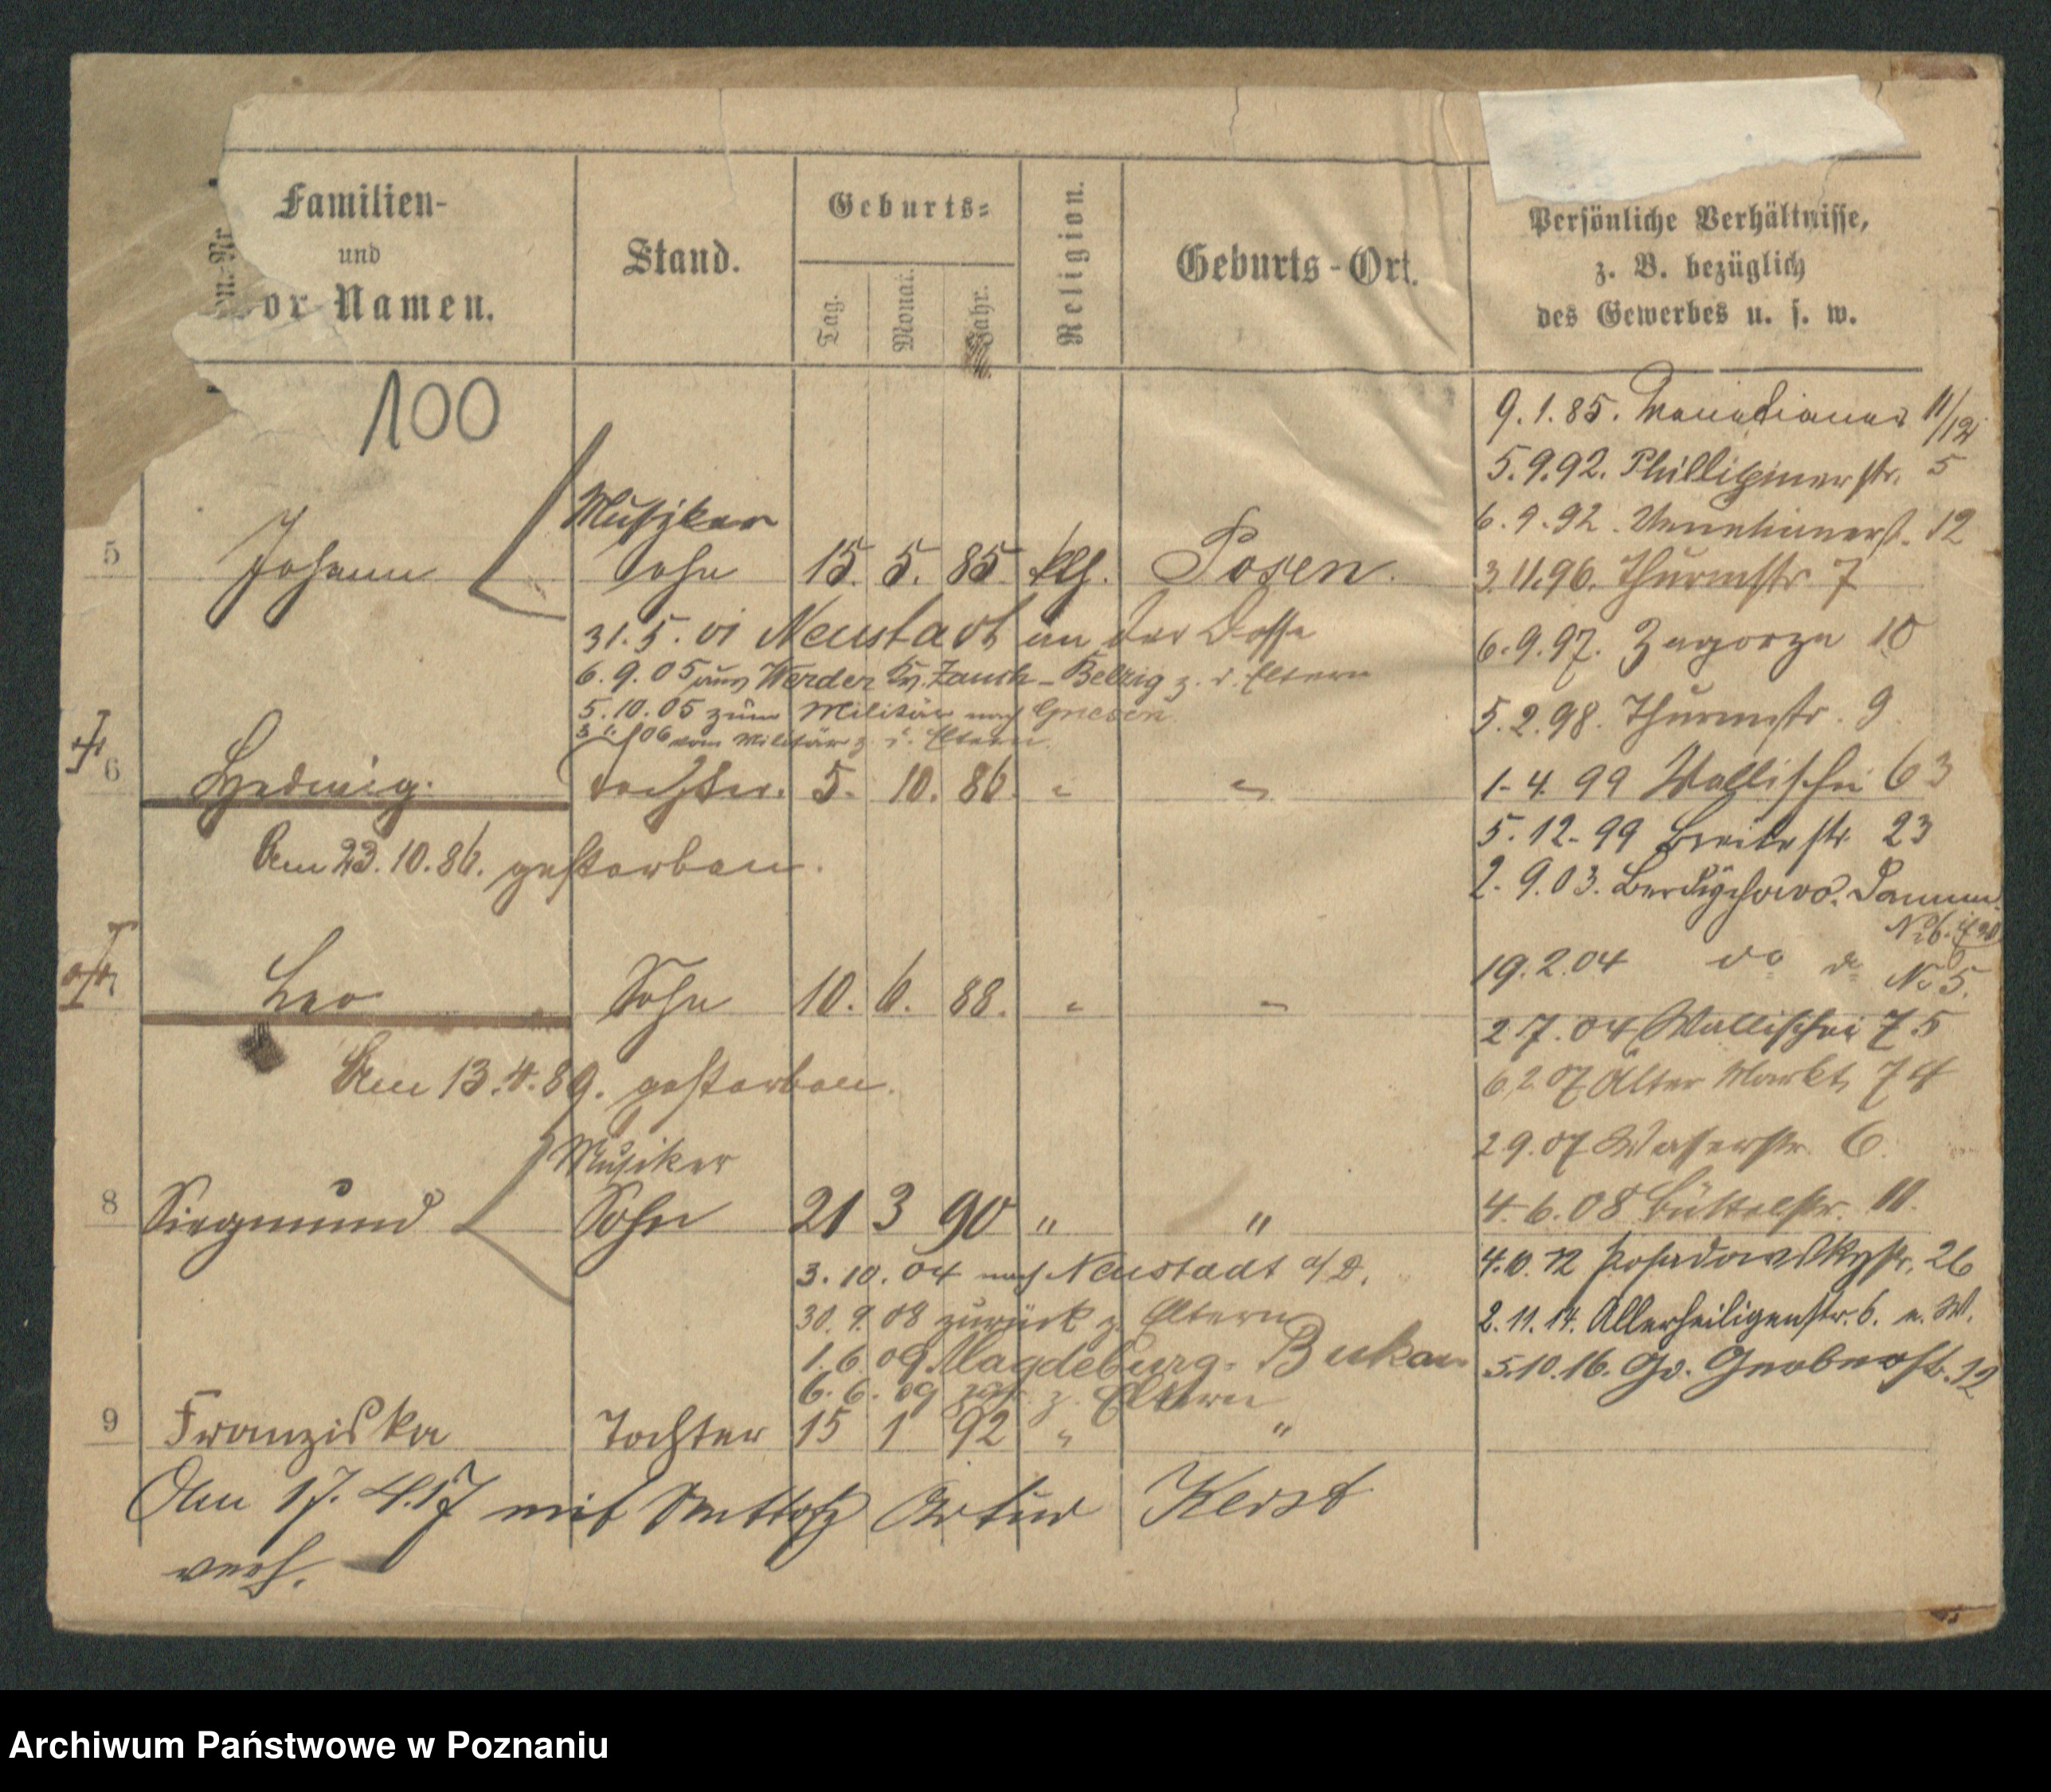 Familien-
und
or-Namen.
Stand.
Geburts-
Tag.
Monat.
Jahr.
Religion.
Geburts-Ort.
Persönliche Verhältnisse,
z. B. bezüglich
des Gewerbes u. s. w.
100
9.1.85. 11/12
5.9.92. Phillipinerstr. 5
6.9.92. 12
3.11.96. Thurmstr 7
6.9.97. Zagorze 10
5.2.98. Thurmstr. 9
1.4.99 Wallischei 63
5.12.99 Breitestr. 23
2.9.03. Berdychowo. Damm
19.2.04 do do No 5.
2.7.04 Wallischei 75
6.2.07 Alter Markt 74
2.9.07 Wasserstr. 6.
4.6.08 Büttelstr. 11.
4.10.12 Posadowskystr. 26
2.11.14. Allerheiligenstr. 6. n. W.
5.10.16. Gr. 12
5 Johann Musiker Sohn 15. 5. 85 kth. Posen.
31.5.01 Neustadt an der Dosse
6.9.05 aus Werder Kr. Zauch-Belzig z. d. Eltern
5.10.05 zum Militär nach Gnesen
06 vom Militär z. d. Eltern.
6 Hedwig. Tochter. 5. 10. 86. " "
Am 23.10.86. gestorben.
7 Leo Sohn 10. 6. 88. " "
Am 13.4.89. gestorben.
8 Siegmund Musiker Sohn 21 3 90 " "
3.10.04 nach Neustadt a/D.
30.9.08 zurück z. Eltern
1.6.09 Magdeburg-Bukau
6.6.09 zur. z. Eltern
9 Franziska Tochter 15 1 92 " "
Am 17.4.17 mit Artur Kerst
verh.
Archiwum Państwowe w Poznaniu